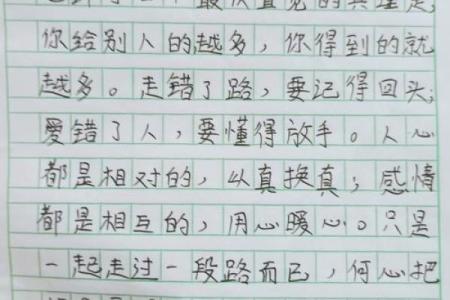 最
的真理是
你给别人的越多，你得到的就
越多。走错了路，要记得回头；
爱错了人，要懂得放手。人心
都是相对的，以真换真；感情
都是相互的，用心暖心。只是
一起走过一段路而已，何心把